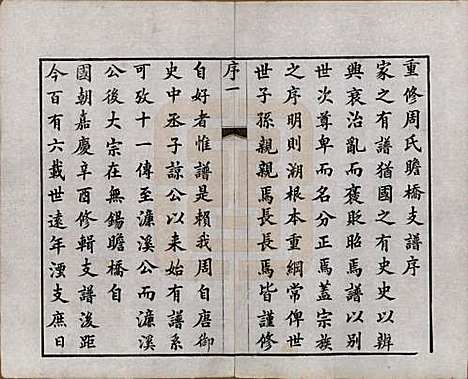 重修周氏瞻橋支譜序
家之有譜猶國之有史史以辨
興衰治亂而褒貶昭焉譜以別
世次尊卑而名分正焉蓋宗族
之序明則溯根本重綱常俾世
世子孫親親焉長長焉皆謹修
序一
自好者惟譜是賴我周自唐御
史中丞子諒公以來始有譜系
可攷十一傳至濂溪公而濂溪
公後大宗在無錫瞻橋自
國朝嘉慶辛酉修輯支譜後距
今百有六載世遠年湮支庶日